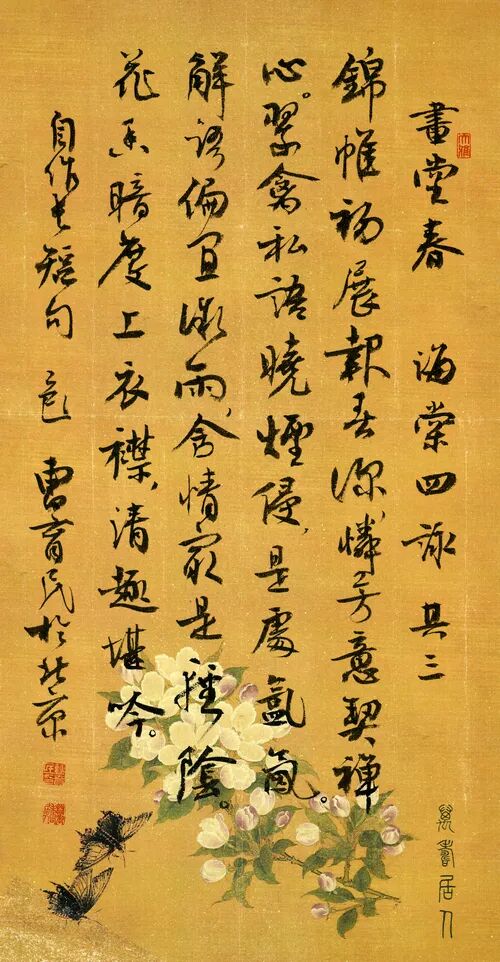 畫堂春 海棠四詠 其三
錦帷初展報春深，憐芳意契禪
心。翠禽私語曉煙侵，是處氤氳。
解語偏宜微雨，含情最是輕陰。
花香暗度上衣襟，清趣堪吟。
自作長短句 曹育民於北京
萬壽居人